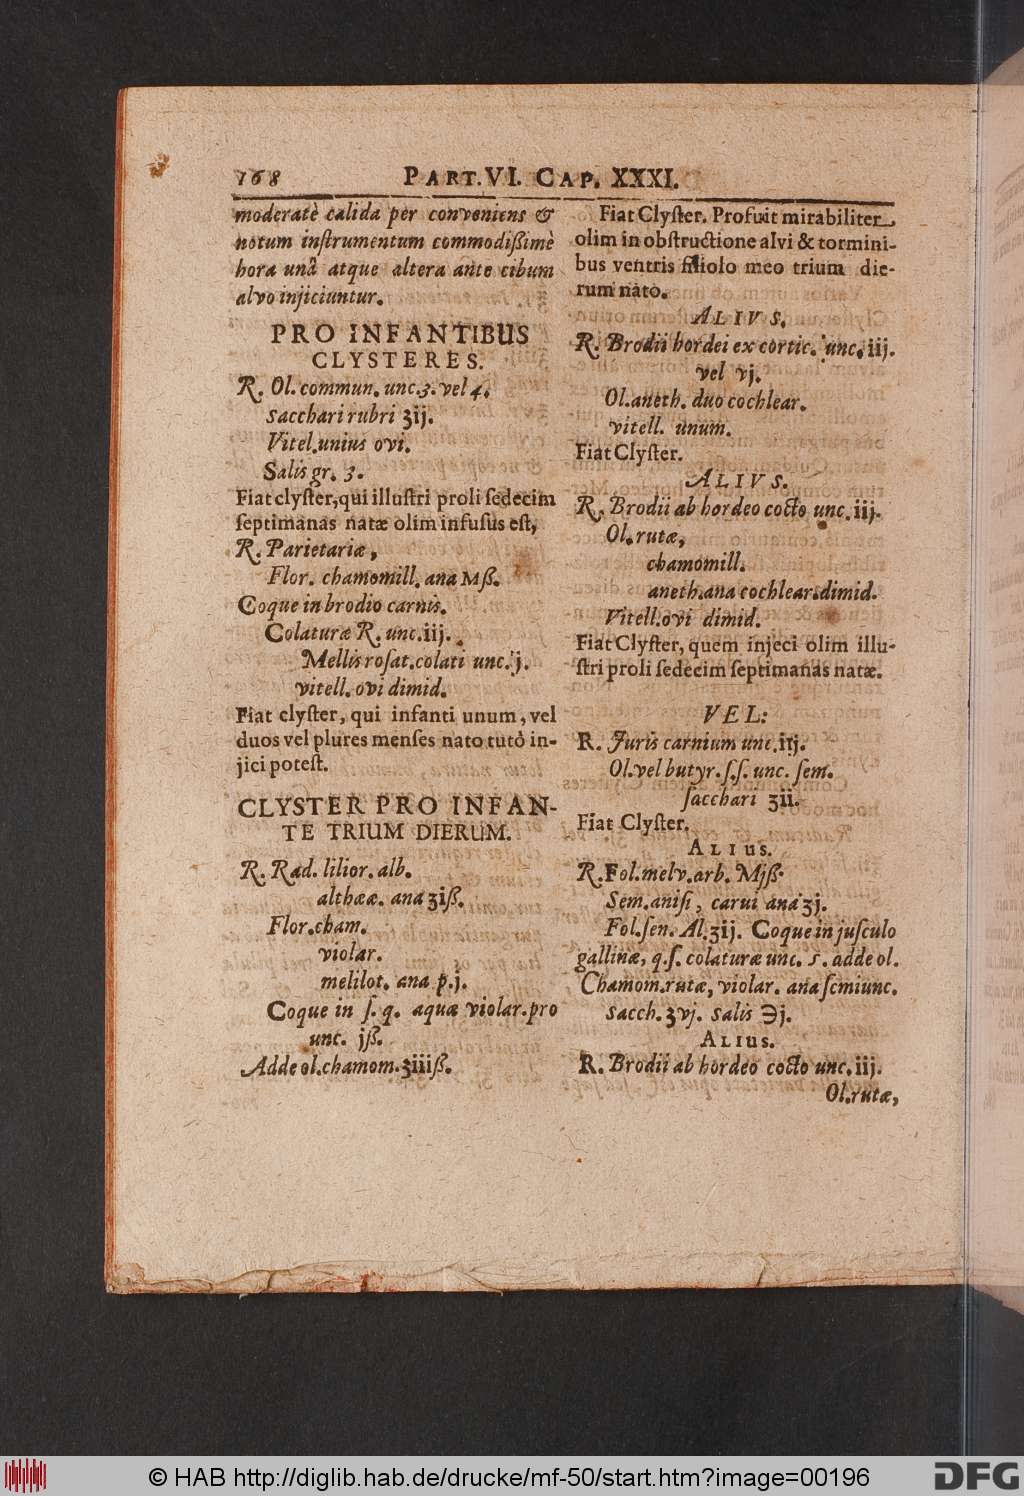 168 PART. VI. CAP. XXXI.
moderatè calida per conveniens &
notum instrumentum commodißimè
hora unâ atque altera ante cibum
alvo injiciuntur.
PRO INFANTIBUS
CLYSTERES.
℞. Ol. commun. unc. 3. vel 4.
sacchari rubri ʒij.
Vitel. unius ovi.
Salis gr. 3.
Fiat clyſter, qui illuſtri proli ſedecim
ſeptimanas natæ olim infuſus eſt,
℞. Parietariæ,
Flor. chamomill. ana Mß.
Coque in brodio carnis.
Colaturæ ℞. unc. iij.
Mellis roſat. colati unc. j.
vitell. ovi dimid.
Fiat clyſter, qui infanti unum, vel
duos vel plures menſes nato tutò in-
jici poteſt.
CLYSTER PRO INFAN-
TE TRIUM DIERUM.
℞. Rad. lilior. alb.
althææ. ana ʒiß.
Flor. cham.
violar.
melilot. ana p. j.
Coque in ſ. q. aquæ violar. pro
unc. jß.
Adde ol. chamom. ʒiiiß.
Fiat Clyſter. Profuit mirabiliter
olim in obſtructione alvi & tormini-
bus ventris filiolo meo trium die-
rum nato.
ALIVS.
℞. Brodii hordei ex cortic. unc. iij.
vel vj.
Ol. aneth. duo cochlear.
vitell. unum.
Fiat Clyſter.
ALIVS.
℞. Brodii ab hordeo cocto unc. iij.
Ol. rutæ,
chamomill.
aneth. ana cochlear. dimid.
Vitell. ovi dimid.
Fiat Clyſter, quem injeci olim illu-
ſtri proli ſedecim ſeptimanas natæ.
VEL:
℞. Juris carnium unc. iij.
Ol. vel butyr. ſ. ſ. unc. ſem.
ſacchari ʒii.
Fiat Clyſter.
ALIus.
℞. Fol. melv. arb. Mjß.
Sem. aniſi, carui ana ʒj.
Fol. ſen. Al. ʒij. Coque in juſculo
gallinæ, q. ſ. colaturæ unc. 5. adde ol.
Chamom. rutæ, violar. ana ſemiunc.
sacch. ʒvj. salis ℈j.
ALIus.
℞. Brodii ab hordeo cocto unc. iij.
Ol. rutæ,
© HAB http://diglib.hab.de/drucke/mf-50/start.htm?image=00196
DFG